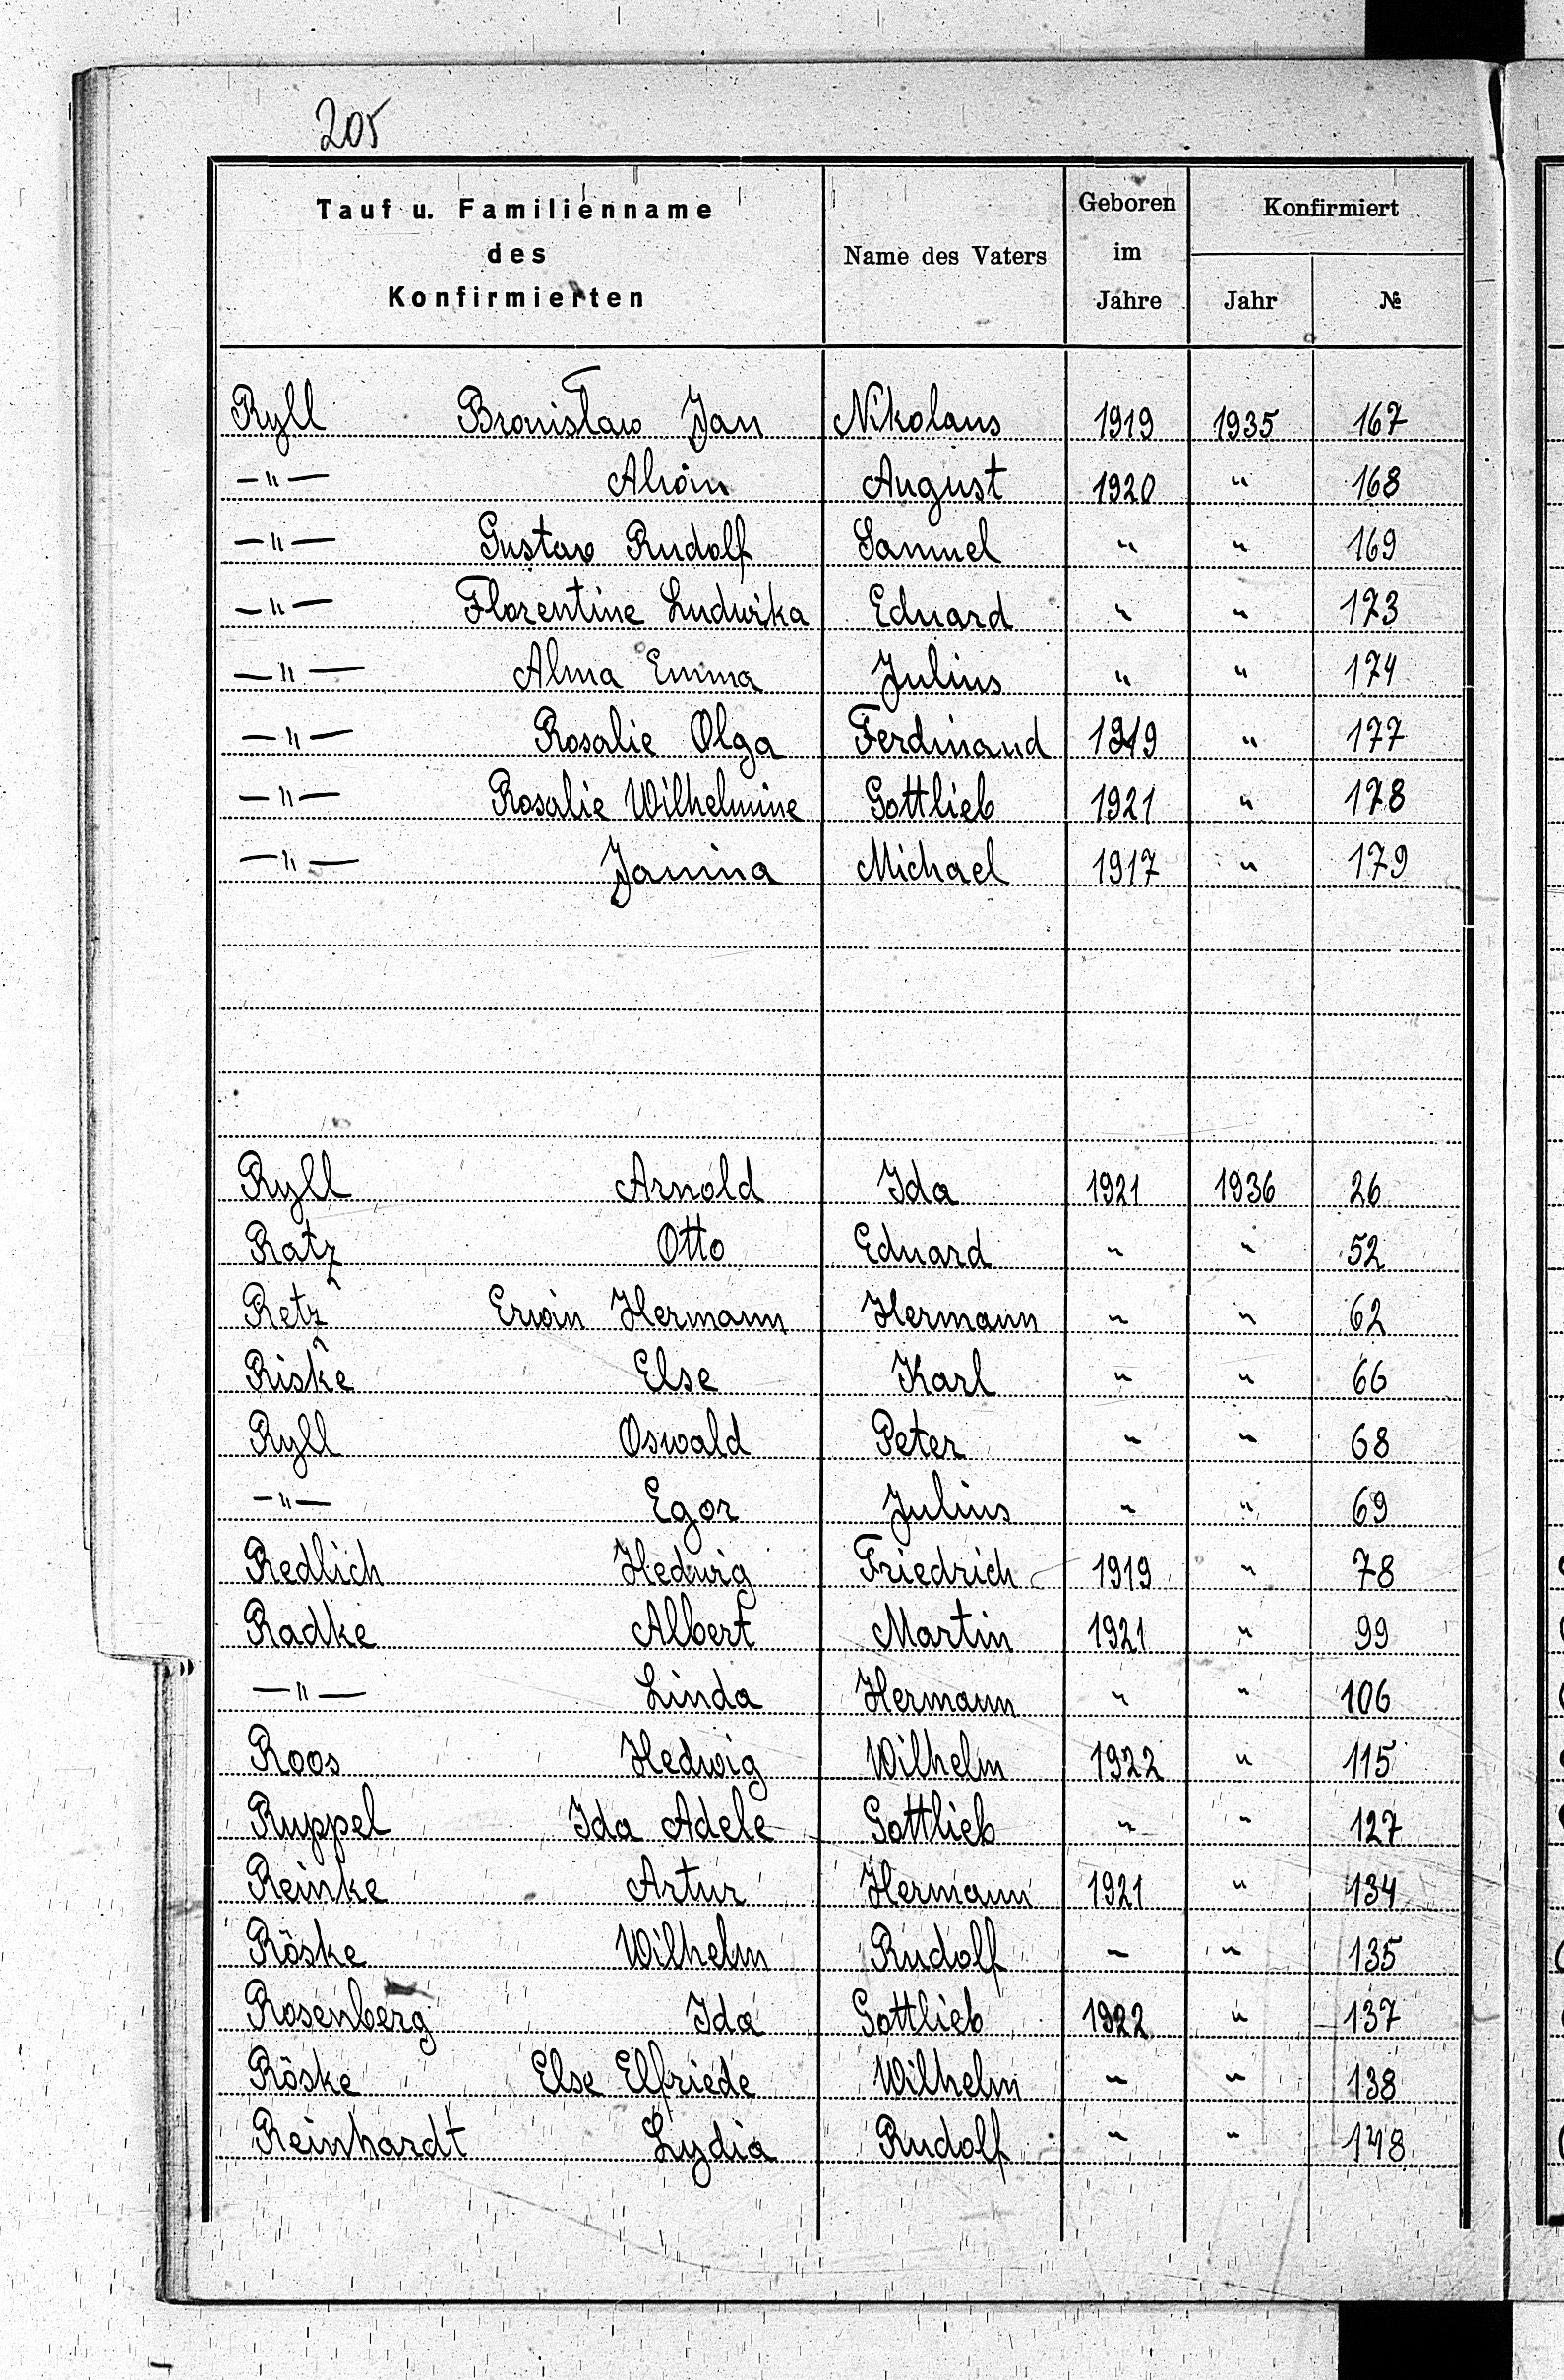 205
Tauf u. Familienname des Konfirmierten Name des Vaters Geboren im Jahre Konfirmiert Jahr №
Ryll Bronisław Jan Nikolaus 1919 1935 167
—"— Alwin August 1920 " 168
—"— Gustav Rudolf Samuel " " 169
—"— Florentine Ludwika Eduard " " 173
—"— Alma Emma Julius " " 174
—"— Rosalie Olga Ferdinand 1919 " 177
—"— Rosalie Wilhelmine Gottlieb 1921 " 178
—"— Janina Michael 1917 " 179
Ryll Arnold Ida 1921 1936 26
Ratz Otto Eduard " " 52
Retz Erwin Hermann Hermann " " 62
Riske Else Karl " " 66
Ryll Oswald Peter " " 68
—"— Egor Julius " " 69
Redlich Hedwig Friedrich 1919 " 78
Radke Albert Martin 1921 " 99
—"— Linda Hermann " " 106
Roos Hedwig Wilhelm 1922 " 115
Ruppel Ida Adele Gottlieb " " 127
Reinke Artur Hermann 1921 " 134
Röske Wilhelm Rudolf " " 135
Rosenberg Ida Gottlieb 1922 " 137
Röske Else Elfriede Wilhelm " " 138
Reinhardt Lydia Rudolf " " 148